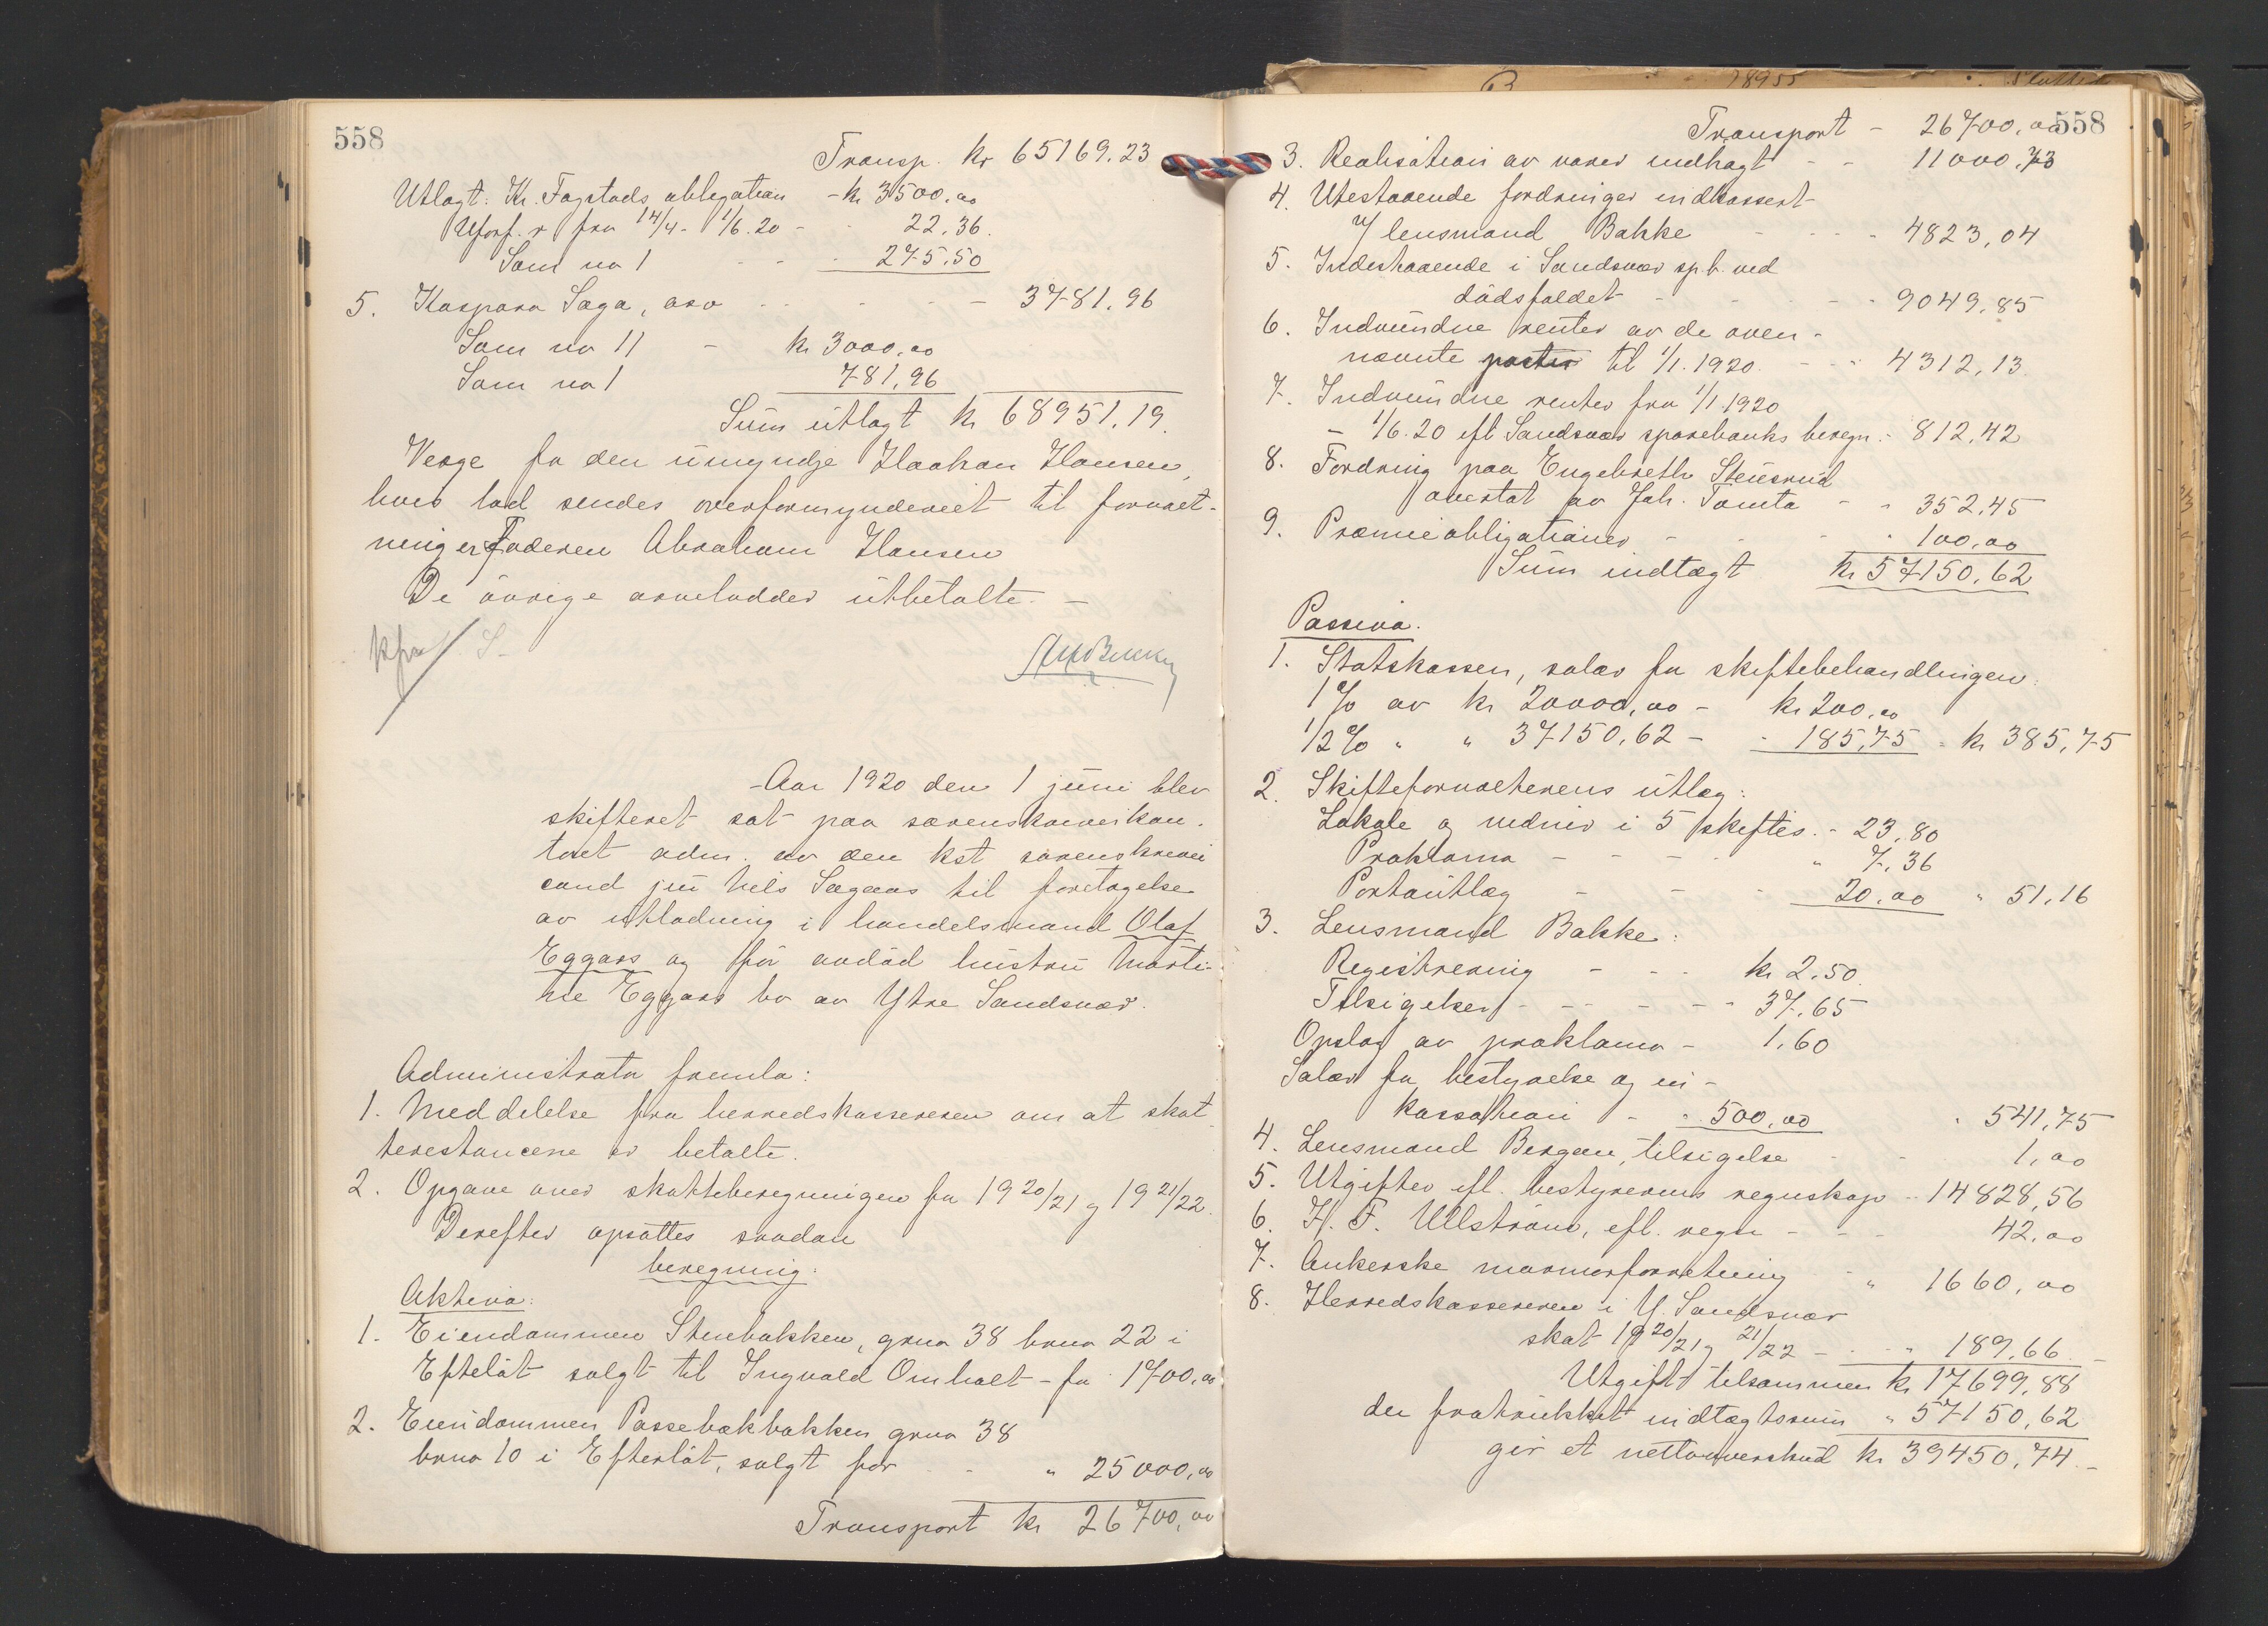 558
Transp. kr 65169.23
Utlagt: Kr. Fagstads obligation - kr 3500.00
Uforf. r fra 14/4 - 1/6.20 - 22.36.
Som no 1 - - - 275.50
5. Kaspara Saga, arv - - - 3781.96
Som no 11 - kr 3000.00
Som no 1 781,96
Sum utlagt kr 68951,19.
Verge for den umyndge Haakon Hansen,
hvis lod sendes overformynderiet til forvalt-
ning er Faderen Abraham Hansen
De övrige arvelodder utbetalte. -
Aar 1920 den 1 juni blev
skifteret sat paa sorenskriverkon-
toret adm. av den kst sorenskriver
cand jur Nils Sagaas til foretagelse
av utlodning i handelsmand Olaf
Eggars og för avdöd hustru Marti-
ne Eggars bo av Ytre Sandsvær.
Administrator fremla:
1. Meddelelse fra herredskassereren om at skat-
terestancene er betalte.
2. Opgave over skatteberegningen for 1920/21 og 1921/22.
Derefter opsattes saadan
beregning:
Aktiva:
1. Eiendommen Stenbakken, grno 38 brno 22 i
Eftelöt solgt til Ingvald Omholt - for 1700,00
2. Eiendommen Passebækbakken grno 38
brno 10 i Efterlöt, solgt for - " 25000,00
Transport kr 26700,00
558
Transport - 26700,00
3. Realisation av varer indbragt - - 11000,73
4. Utestaaende fordringer indkassert
v/ lensmand Bakke - - - 4823,04
5. Indestaaende i Sandsvær sp.b. ved
dödsfaldet - - - 9049,85
6. Indvundne renter av de oven-
nævnte poster til 1/1.1920. - - 4312,13
7. Indvundne renter fra 1/1 1920
- 1/6.20 efl Sandsvær sparebanks beregn. - 812,42
8. Fordring paa Engebreth Stensrud
overtat av Joh. Tomta - - 352,45
9. Præmieobligationer - - - 100,00
Sum indtægt kr 57150,62
Passiva.
1. Statskassen, salær for skiftebehandlingen:
1% av kr 20000,00 - kr 200,00
1/2% " " 37150,62 - - 185,75 = kr 385,75
2. Skifteforvalterens utlæg:
Lokale og vidner i 5 skiftes. - 23,80
Proklama - - - " 7,36
Portoutlæg - - - 20,00 " 51,16
3. Lensmand Bakke:
Registrering - - - kr 2,50
Tilsigelser - - - - 37,65
Opslag av proklama - 1,60
Salær for bestyrelse og in-
kassation - - 500,00 " 541,75
4. Lensmand Bergan, tilsigelse - - 1,00
5. Utgifter efl. bestyrerens regnskap - 14828,56
6. H. F. Ullström, efl. regn - - - 42,00
7. Ankerske marmorforretning - " 1660,00
8. Herredskassereren i Y. Sandsvær
skat 1920/21 og 21/22 - - " 189,66
Utgift tilsammen kr 17699,88
der fratrukket indtægtssum " 57150,62
gir et nettooverskud kr 39450,74 -